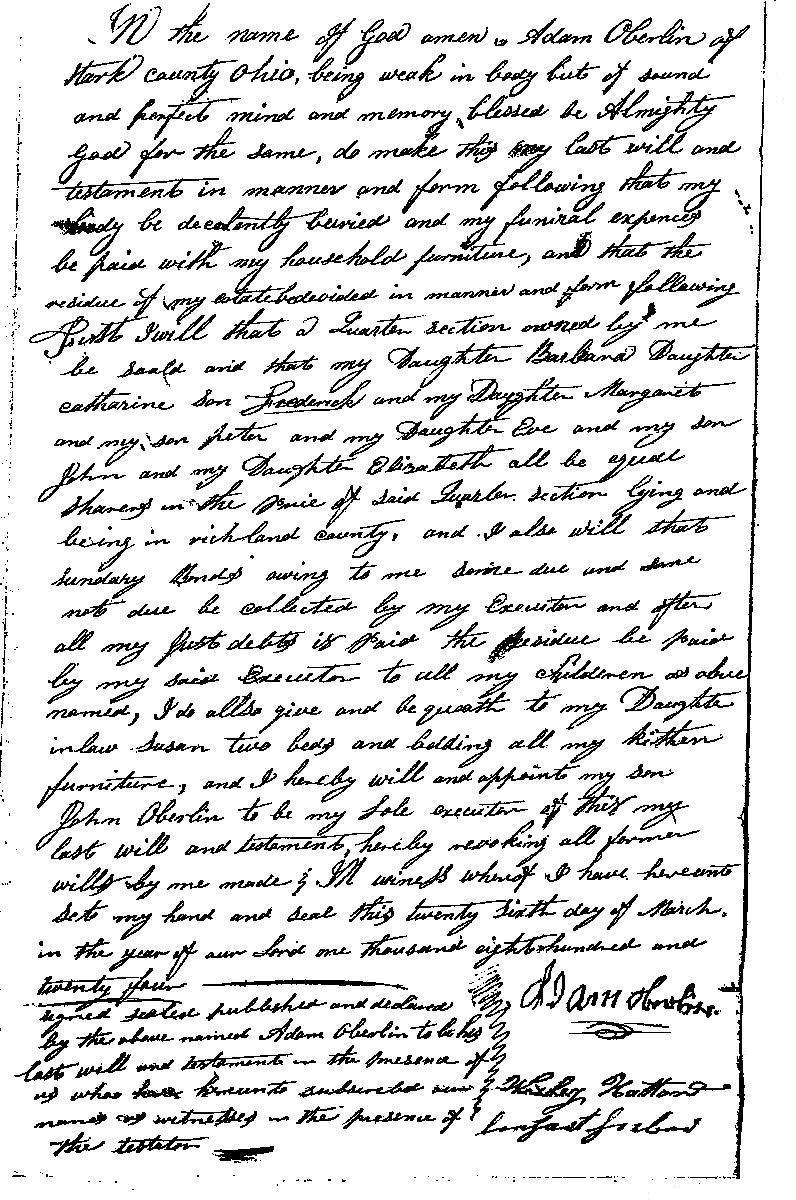 IN the name of God amen Adam Oberlin of
Stark county Ohio, being weak in body but of sound
and perfect mind and memory, blessed be Almighty
God for the same, do make this my last will and
testament in manner and form following that my
body be decelently beuried and my funiral expences
be paid with my household furniture, and that the
residue of my estate be devided in manner and form following
First I will that a Quarter section owned by me
be soald and that my Daughter Barbara Daughter
catharine son Frederick and my Daughter Margaret
and my son peter and my Daughter Eve and my son
John and my Daughter Elizabeth all be equal
sharers in the price of said Quarter section lying and
being in richland county, and I also will that
sundary Bonds owing to me some due and some
not due be collected by my Executor and after
all my Just debts is Paid the residue be paid
by my said Executor to all my childeren as abuve
named, I do allso give and bequeath to my Daughter
inlaw Susan two beds and bedding all my kitchen
furniture, and I hereby will and appoint my son
John Oberlin to be my sole executor of this my
last will and testament, hereby revoking all former
wills by me made & IN winess whereof I have hereunto
sets my hand and seal this twenty sixth day of March.
in the year of our Lord one thousand eight hundred and
twenty four
signed sealed published and declared
by the above named Adam Oberlin to be his
last will and testament in the presence of
us who have hereunto subscribed our
names as witnesses in the presence of
the testator
Adam Oberlin
Hatton